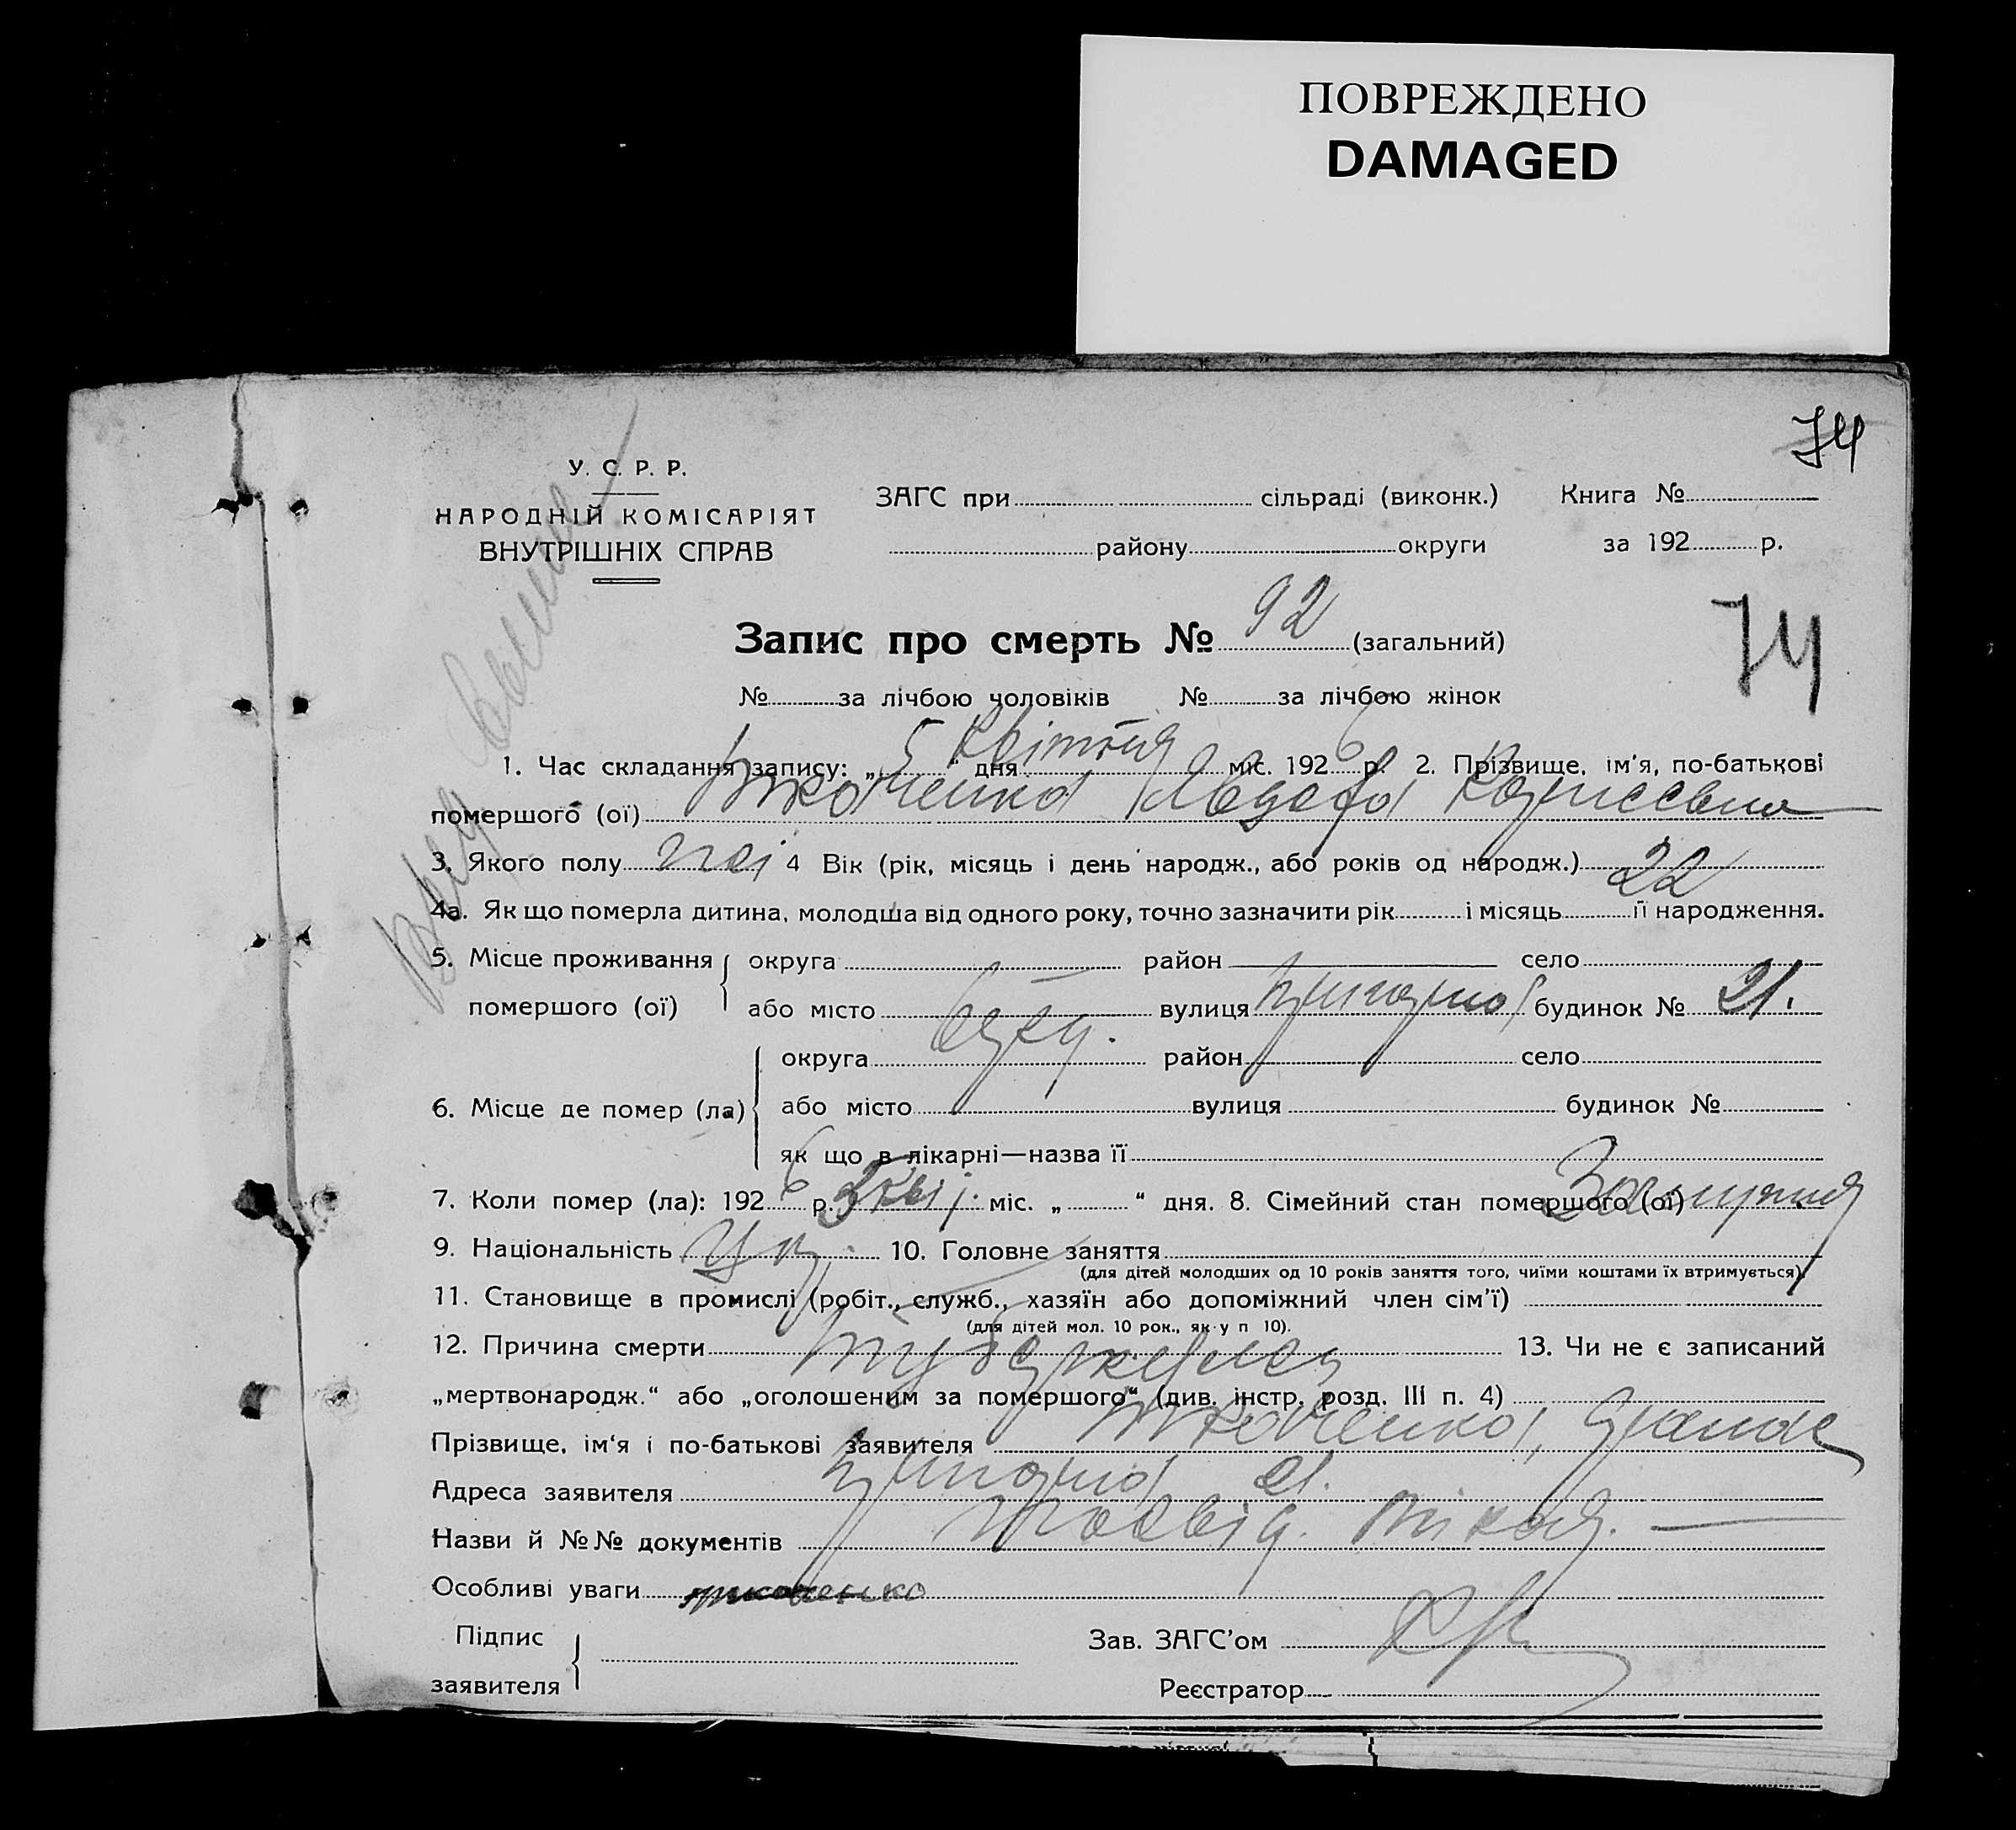 ПОВРЕЖДЕНО
DAMAGED
74
У. С. Р. Р.
НАРОДНІЙ КОМІСАРІЯТ
ВНУТРІШНІХ СПРАВ
ЗАГС при сільраді (виконк.) Книга №
району округи за 192 р.
Запис про смерть № 92 (загальний)
74
№ за лічбою чоловіків № за лічбою жінок
1. Час складання запису: „5“ дня квітня міс. 1926 р. 2. Прізвище, ім'я, по-батькові
помершого (ої) Ткаченко
3. Якого полу 4 Вік (рік, місяць і день народж., або років од народж.) 22
4а. Як що померла дитина, молодша від одного року, точно зазначити рік і місяць її народження.
5. Місце проживання округа район село
помершого (ої) або місто вулиця будинок № 21.
округа район село
6. Місце де помер (ла) або місто вулиця будинок №
як що в лікарні—назва її
7. Коли помер (ла): 1926 р. міс. „ “ дня. 8. Сімейний стан помершого (ої) Замужня
9. Національність Укр. 10. Головне заняття
(для дітей молодших од 10 років заняття того, чиїми коштами їх втримується).
11. Становище в промислі (робіт., служб., хазяїн або допоміжний член сім'ї)
(для дітей мол. 10 рок., як у п 10).
12. Причина смерти туберкульоз 13. Чи не є записаний
„мертвонародж.“ або „оголошеним за помершого“ (див. інстр. розд. III п. 4)
Прізвище, ім'я і по-батькові заявителя Ткаченко,
Адреса заявителя 21.
Назви й №№ документів посвід. лікаря.
Особливі уваги
Підпис Зав. ЗАГС'ом
заявителя Реєстратор